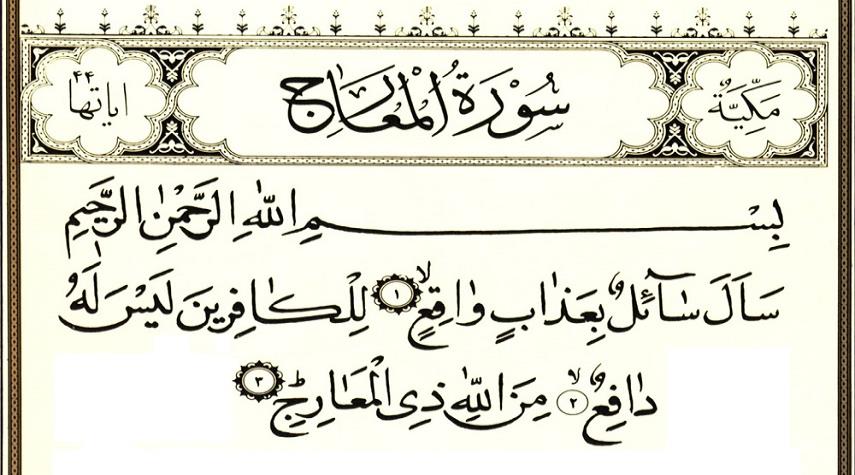 مَكِّيَّةٌ سُورَةُ الْمَعَارِجِ اٰيَاتُهَا ٤٤
بِسْمِ اللّٰهِ الرَّحْمٰنِ الرَّحٖيمِ
سَاَلَ سَٓائِلٌ بِعَذَابٍ وَاقِعٍۙ ﴿١﴾ لِلْكَافِرٖينَ لَيْسَ لَهُ
دَافِعٌۙ ﴿٢﴾ مِنَ اللّٰهِ ذِي الْمَعَارِجِؕ ﴿٣﴾